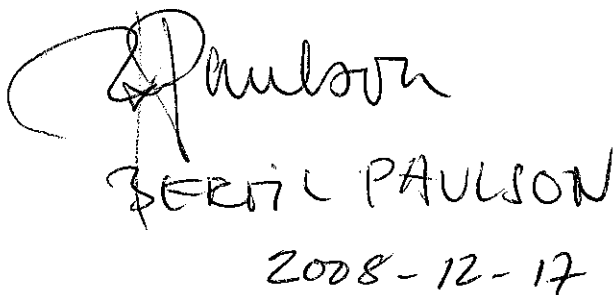 B Paulson
BERTIL PAULSON
2008-12-17